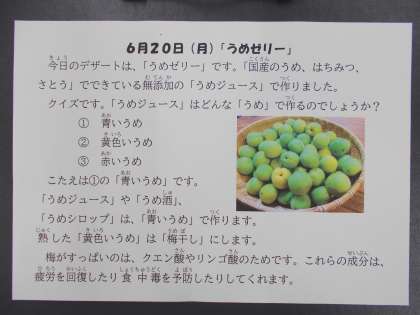 6月20日(月)「うめゼリー」
今日のデザートは、「うめゼリー」です。「国産のうめ、はちみつ、
さとう」でできている無添加の「うめジュース」で作りました。
クイズです。「うめジュース」はどんな「うめ」で作るのでしょうか?
① 青いうめ
② 黄色いうめ
③ 赤いうめ
こたえは①の「青いうめ」です。
「うめジュース」や「うめ酒」、
「うめシロップ」は、「青いうめ」で作ります。
熟した「黄色いうめ」は「梅干し」にします。
梅がすっぱいのは、クエン酸やリンゴ酸のためです。これらの成分は、
疲労を回復したり食中毒を予防したりしてくれます。